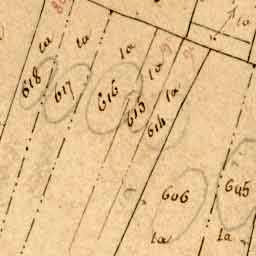 la
la
la
la
la
la
618
617
616
615
614
606
605
la
la